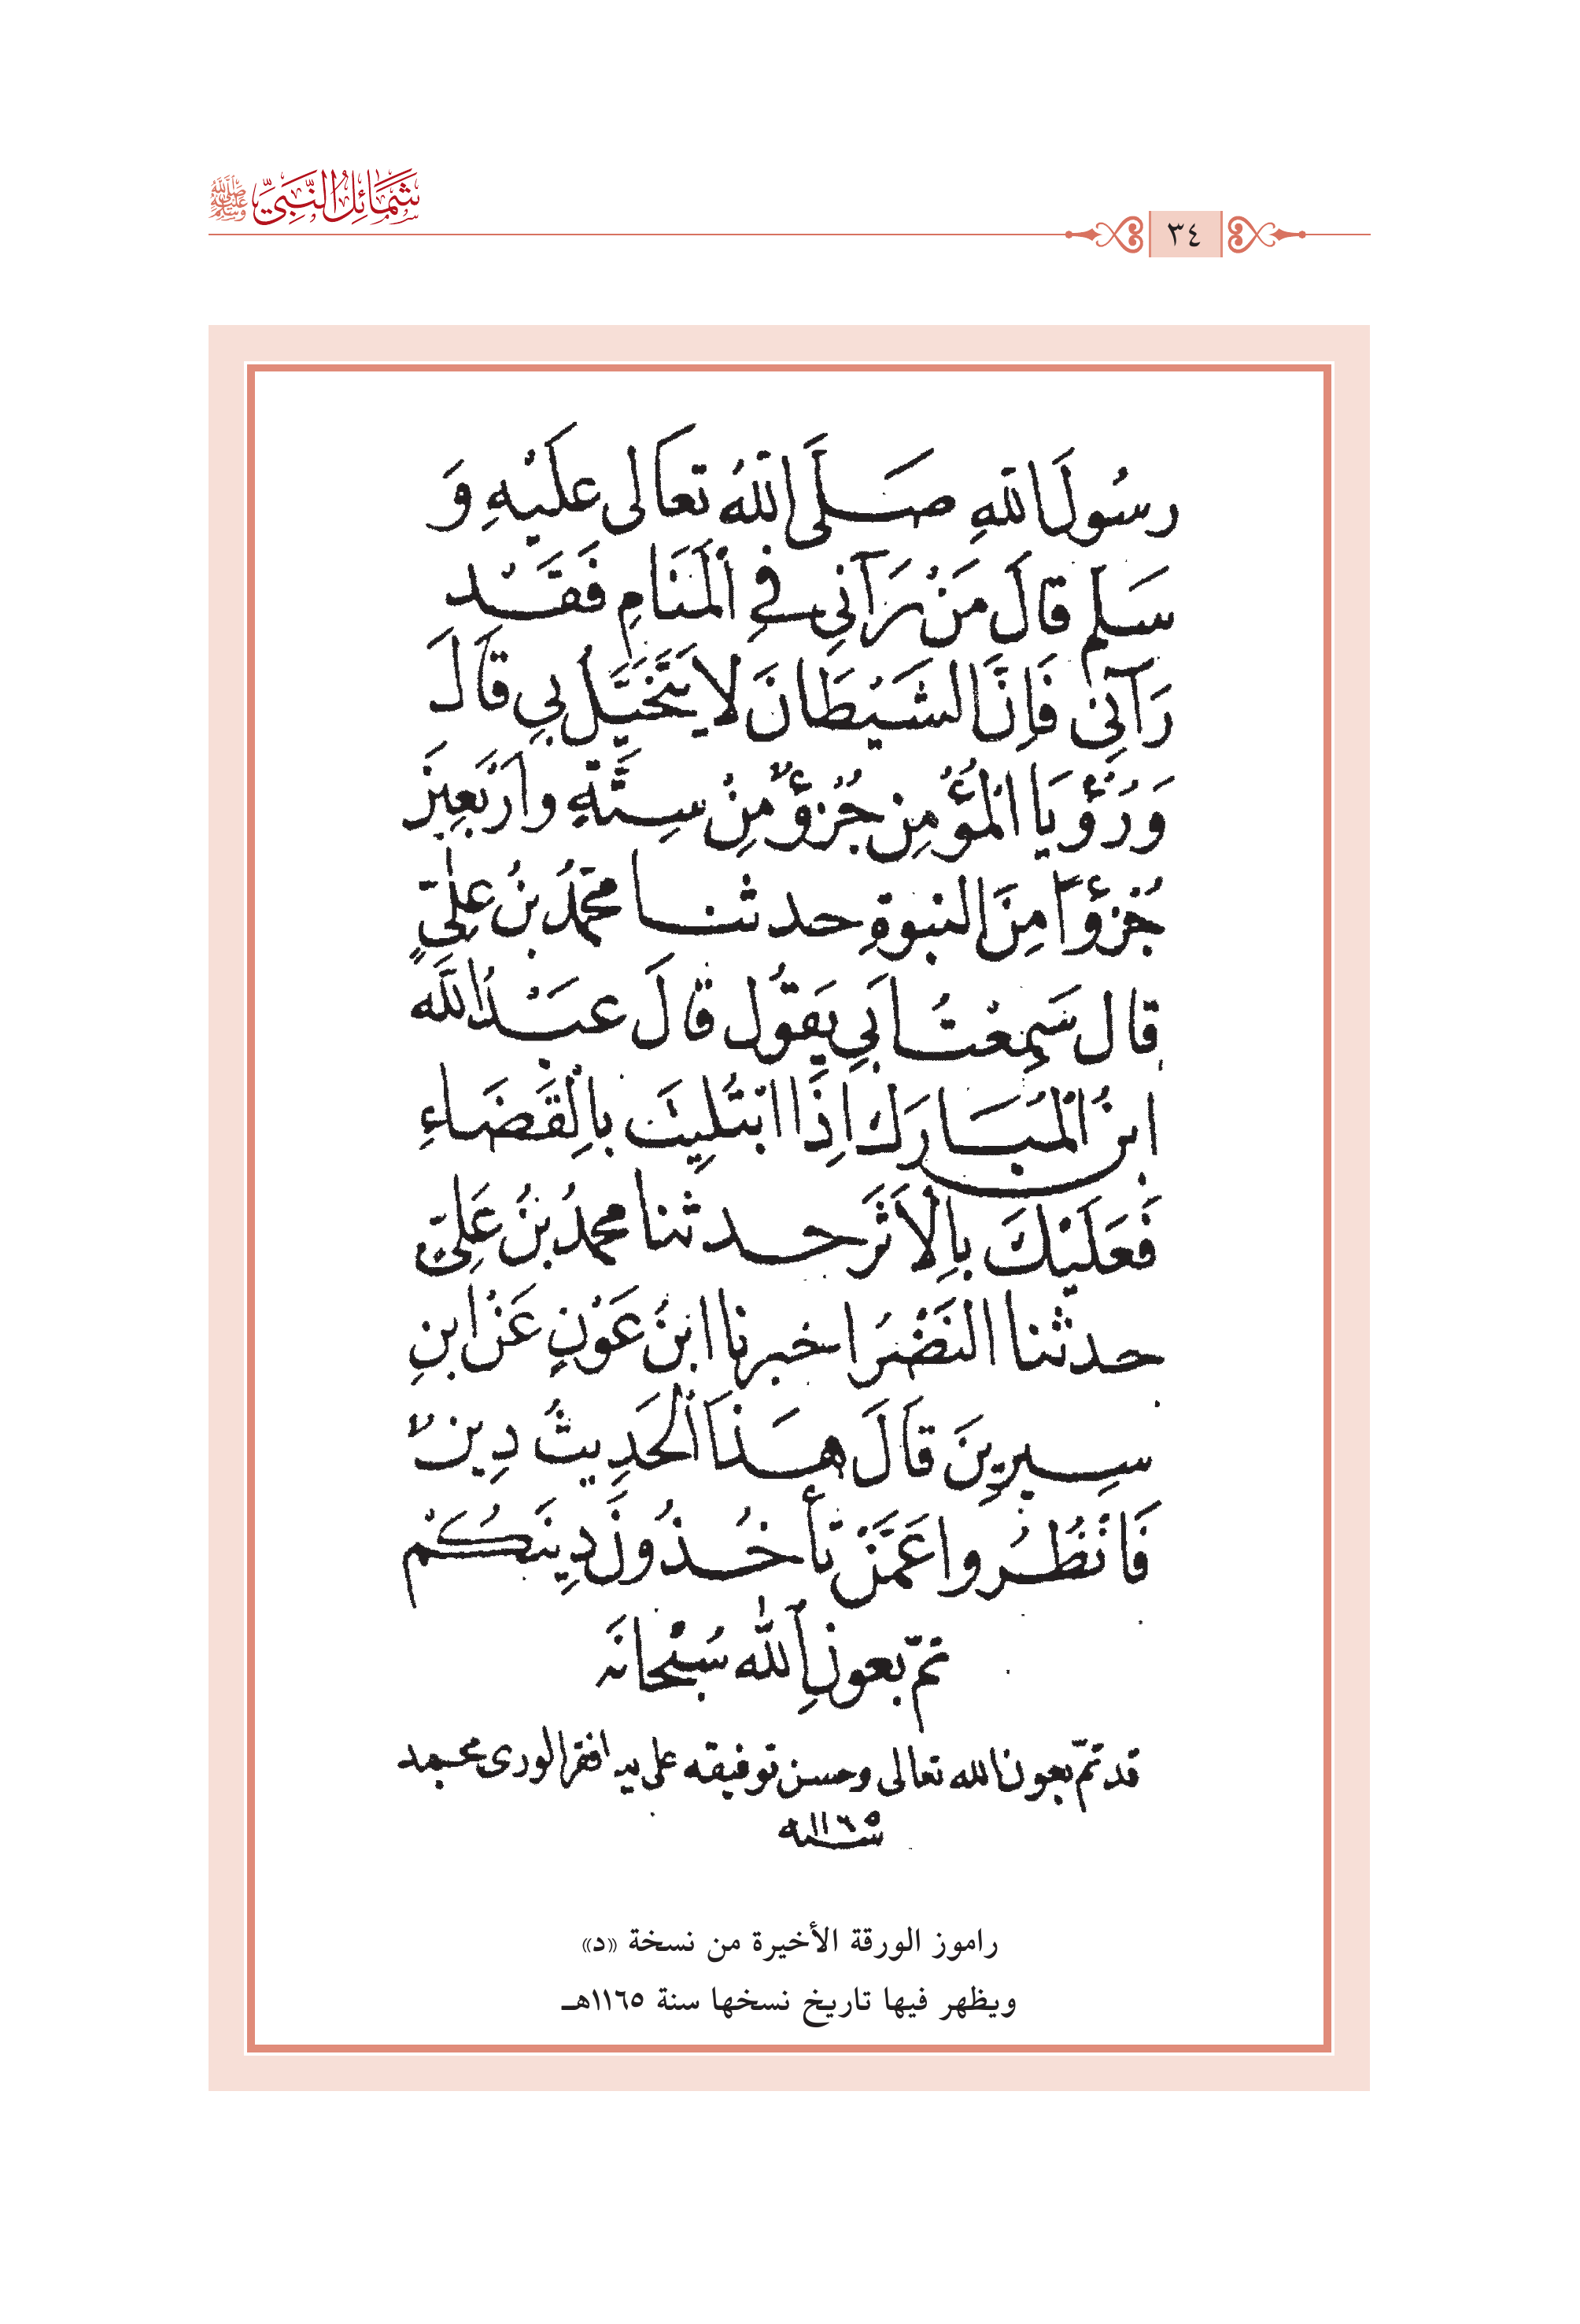 شَمَائِلُ النَّبِيِّ ﷺ
٣٤
رسُولَ اللهِ صَلَّى اللهُ تعالى علَيْهِ وَ
سَلم قالَ مَنْ رَآنِى فِي الْمَنَامِ فَقَدْ
رَآنِى فَإِنَّ الشَيْطَانَ لا يَتَخَيَّلُ بِي قَالَ
وَرُؤْيَا الْمُؤْمِنِ جُزْؤٌ مِنْ سِتَّةٍ وَاَرْبَعِينَ
جُزْؤًا مِنَ النبوةِ حدثنا محمّدُ بنُ علِيٍّ
قال سَمِعْتُ اَبِي يَقُولُ قالَ عبْدُ الله
ابنُ الْمُبَارَكِ اِذَا ابْتُلِيتَ بِالْقَضَاءِ
فَعَلَيْكَ بِالْاَثَرِ حدثنا محمدُ بنُ عَلِيّ
حدثنا النَضْرُ اخبرنا ابنُ عَوْنٍ عَنْ ابنِ
سِيرِينَ قَالَ هَذَا الْحَدِيثُ دِينٌ
فَانْظُرُوا عَمَّنْ تَأْخُذُونَ دِينَكُمْ
تمّ بعون اللهِ سُبْحانَه
قد تمّ بعون الله تعالى وحسن توفيقه على يد افقر الورى محمد
سنه ١١٦٥
راموز الورقة الأخيرة من نسخة «د»
ويظهر فيها تاريخ نسخها سنة ١١٦٥هـ